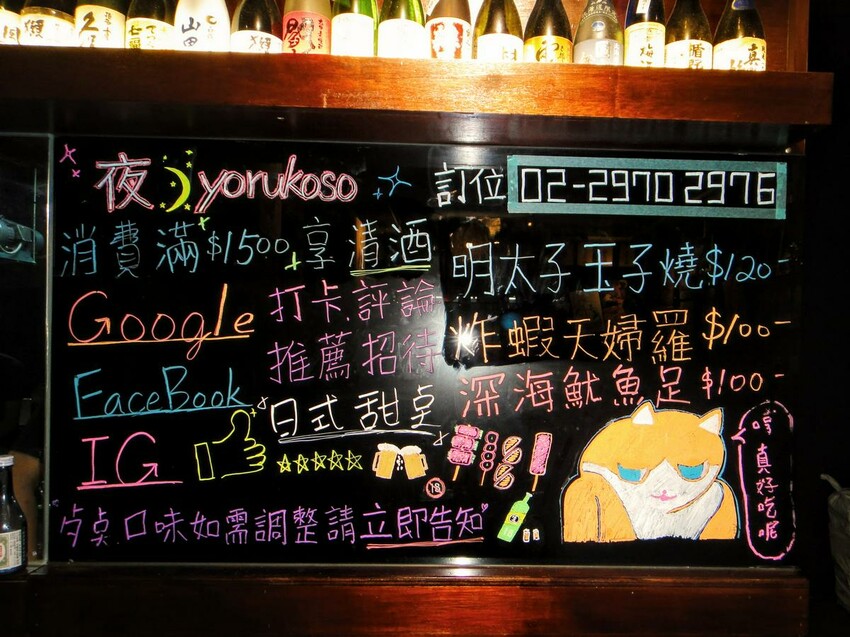 夜 yorukoso
訂位 02-2970 2976
消費滿$1500享清酒
Google
FaceBook
IG
打卡.評論
推薦招待
日式甜桌
明太子玉子燒$120-
炸蝦天婦羅$100-
深海魷魚足$100-
口味如需調整請立即告知
真好吃呢
山田